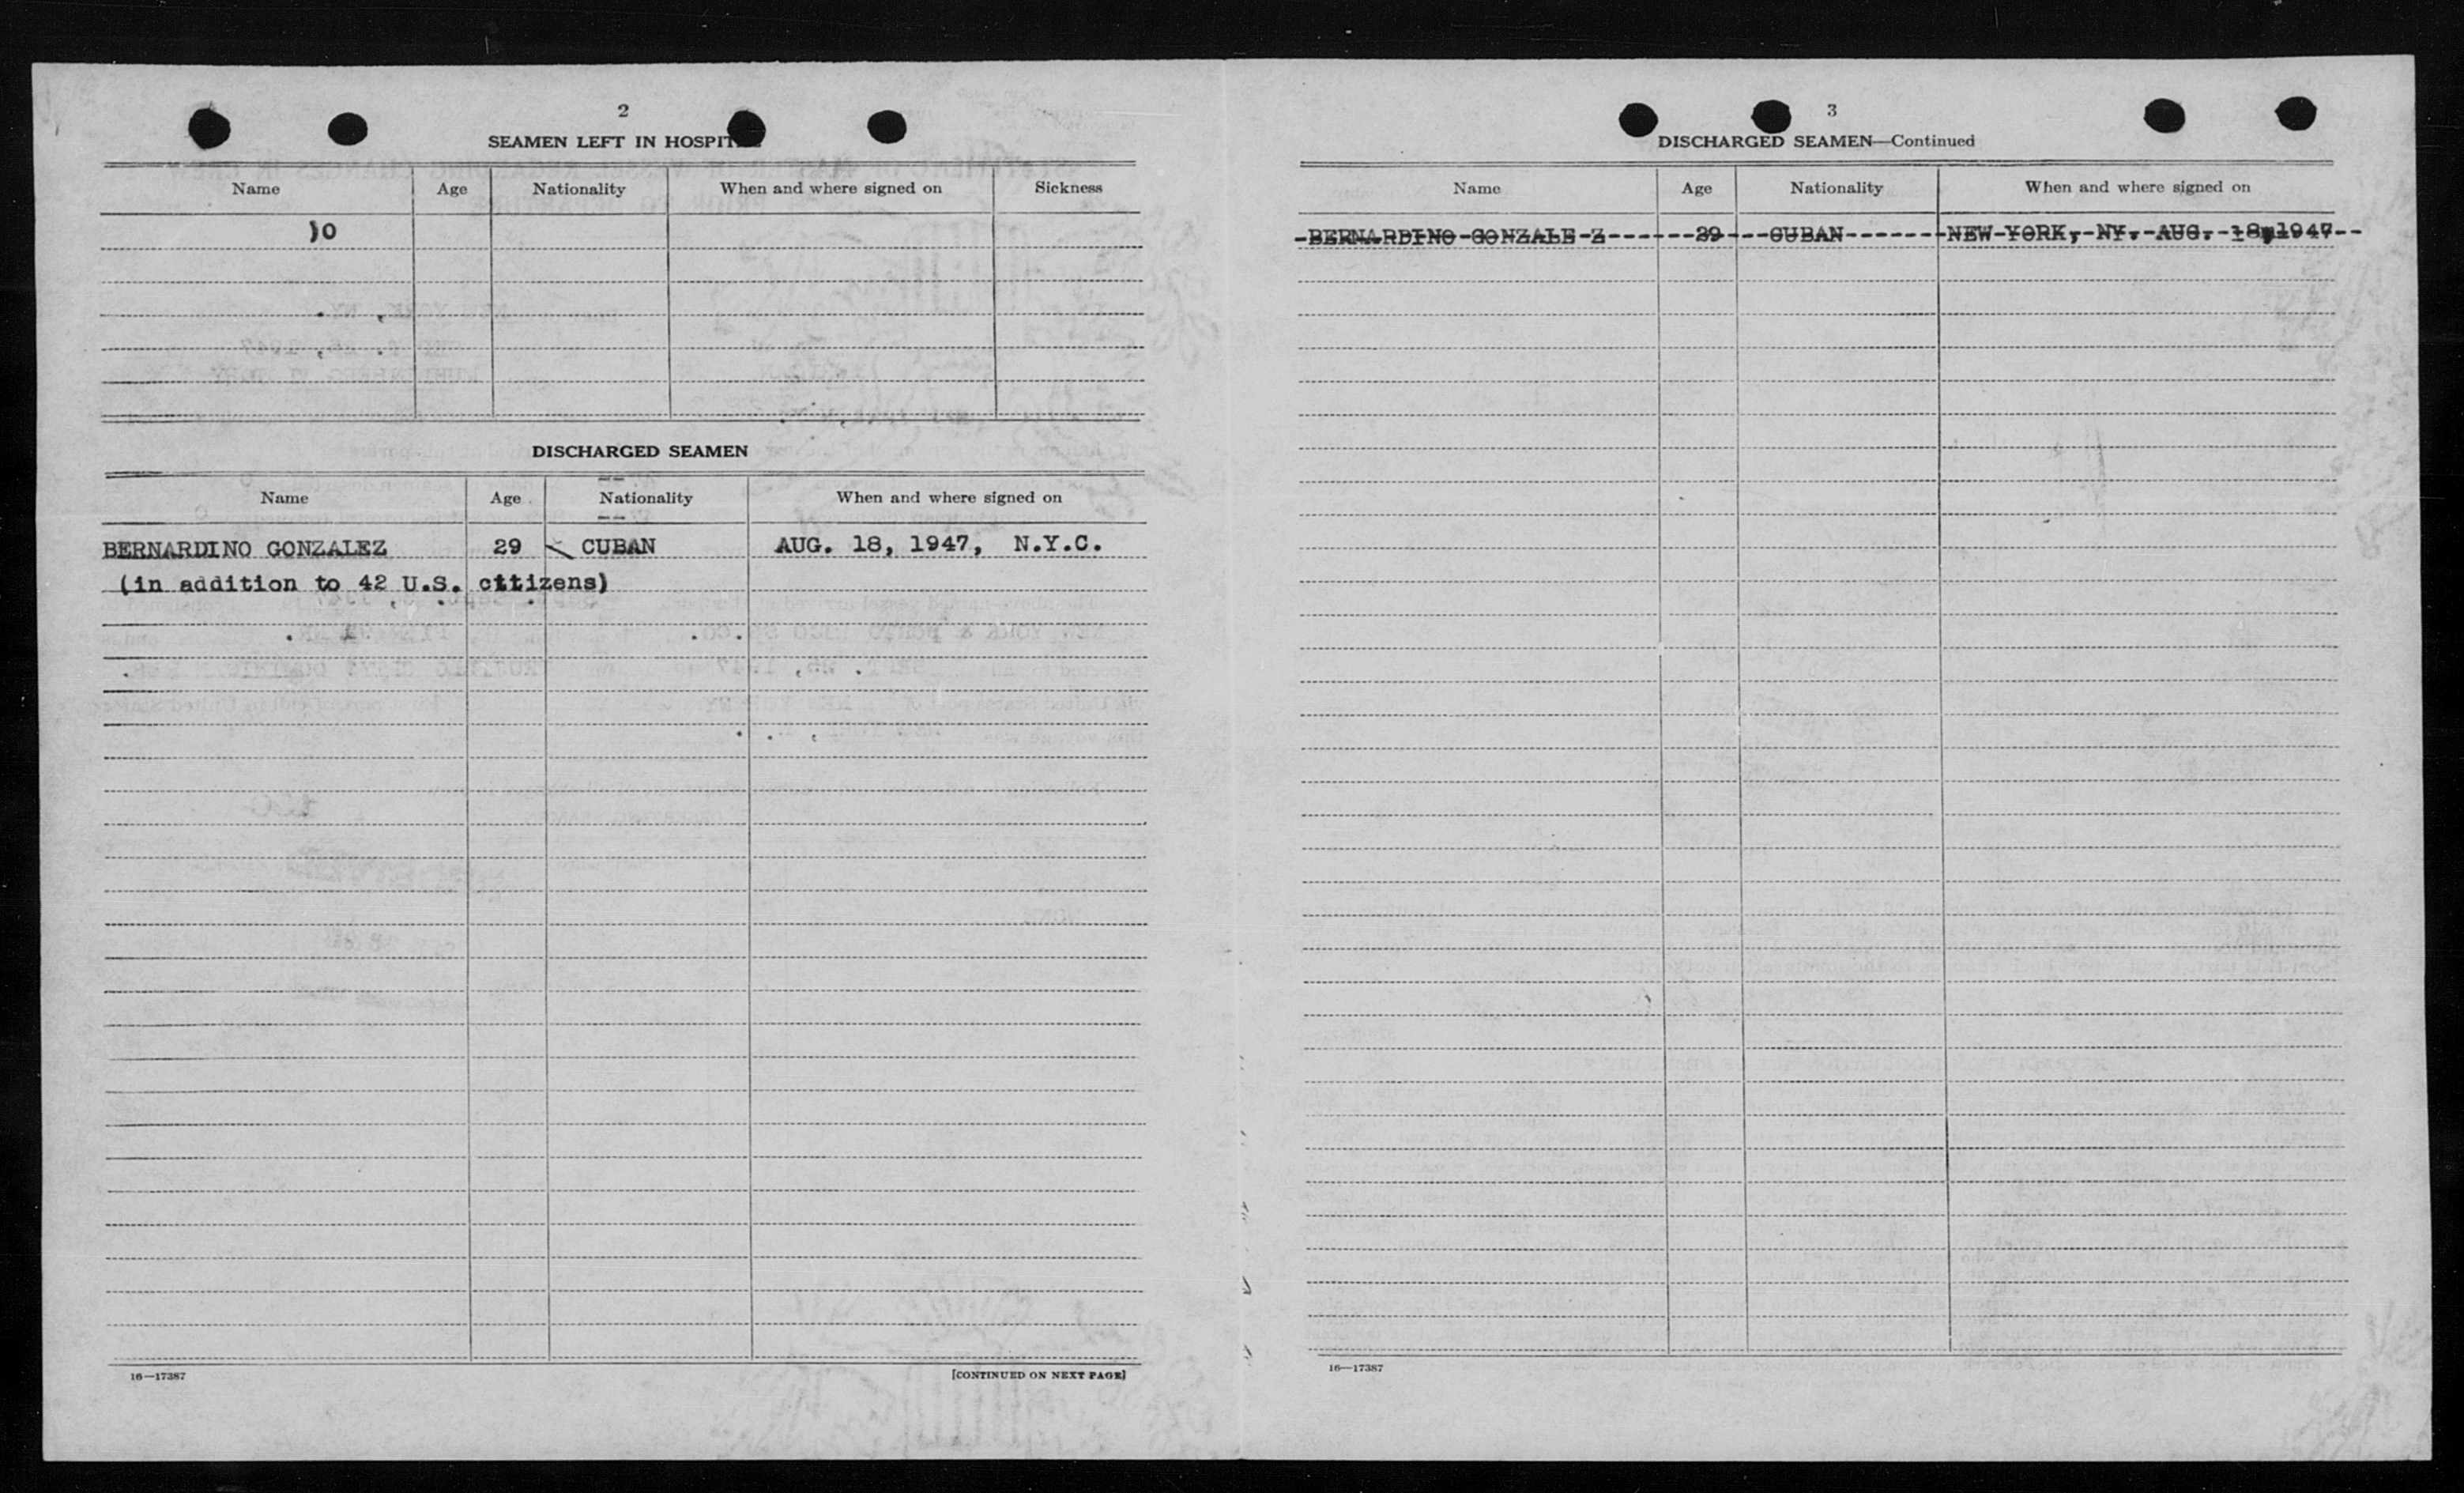 2
SEAMEN LEFT IN HOSPIT
Name Age Nationality When and where signed on Sickness
)0
DISCHARGED SEAMEN
Name Age Nationality When and where signed on
BERNARDINO GONZALEZ 29 CUBAN AUG. 18, 1947, N.Y.C.
(in addition to 42 U.S. citizens)
16—17387 [CONTINUED ON NEXT PAGE]
3
DISCHARGED SEAMEN—Continued
Name Age Nationality When and where signed on
BERNARDINO GONZALE Z 29 CUBAN NEW YORK, NY. AUG. 18, 1947
16—17387